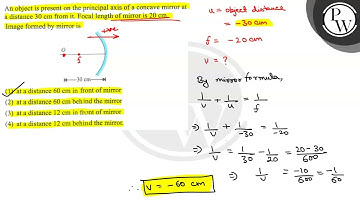 An object is present on the principal axis of a concave mirror at
a distance 30 cm from it. Focal length of mirror is 20 cm.
Image formed by mirror is
+ve
O
f
30 cm
(1) at a distance 60 cm in front of mirror
(2) at a distance 60 cm behind the mirror
(3) at a distance 12 cm in front of mirror
(4) at a distance 12 cm behind the mirror.
u = object distance
= -30 cm
f = -20 cm
v = ?
By mirror formula,
1/v + 1/u = 1/f
⇒ 1/v + 1/-30 = 1/-20
⇒ 1/v = 1/30 - 1/20 = 20-30/600
⇒ 1/v = -10/600 = -1/60
∴ v = -60 cm
PW